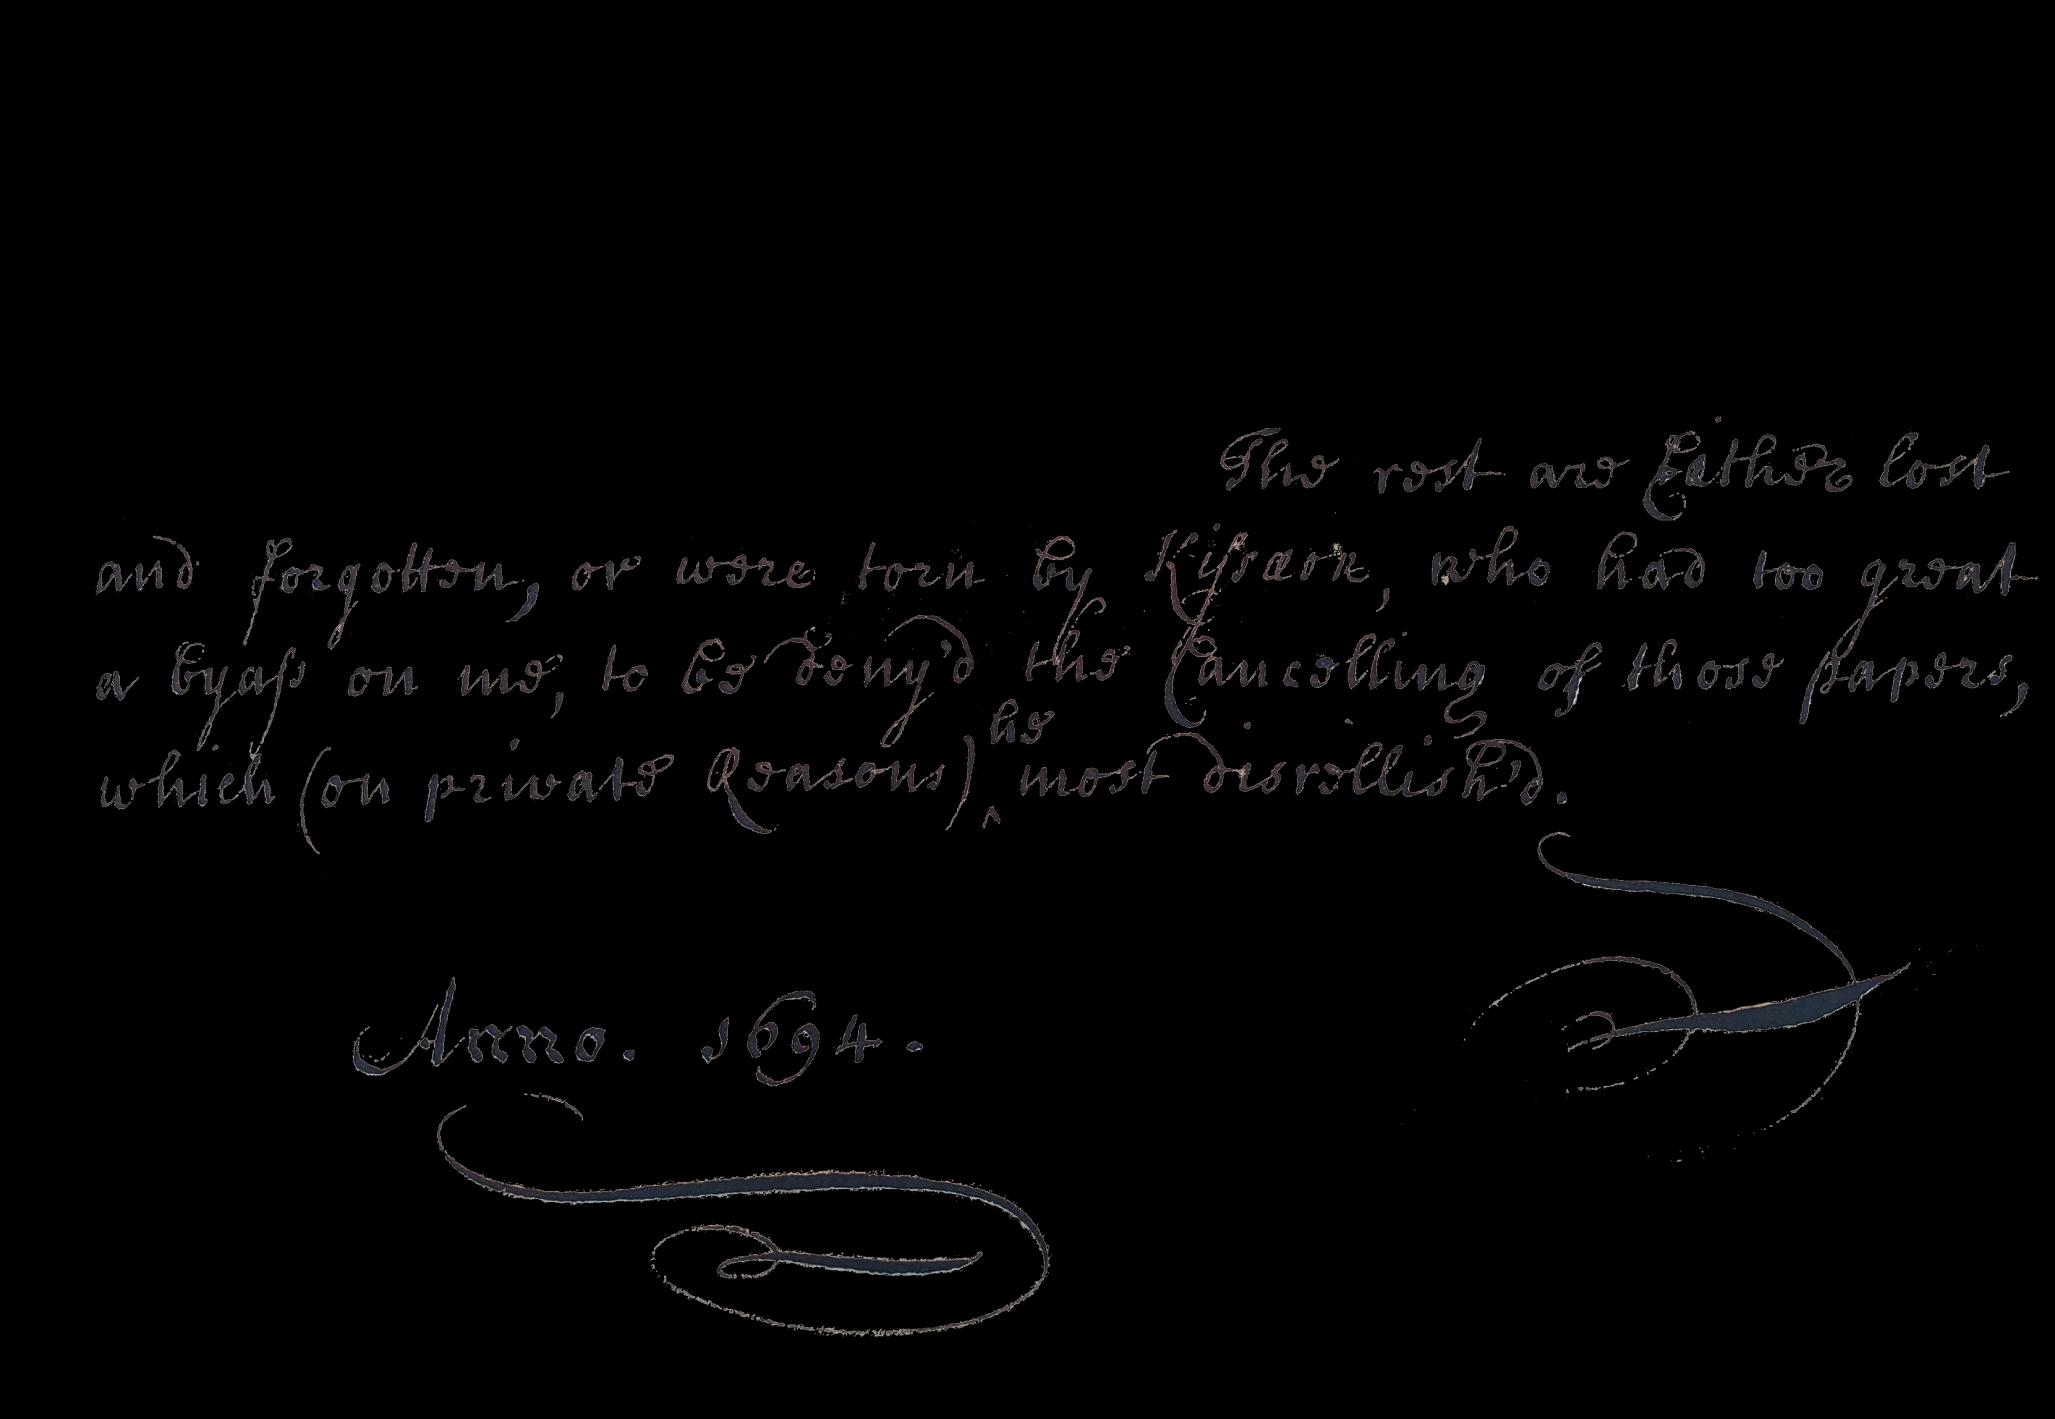 The rest are Either lost
and forgotten, or were torn by who had too great
a byass on me, to be deny'd the Cancelling of those papers,
which (on private Reasons) ^he most disrellish'd.
Anno. 1694.